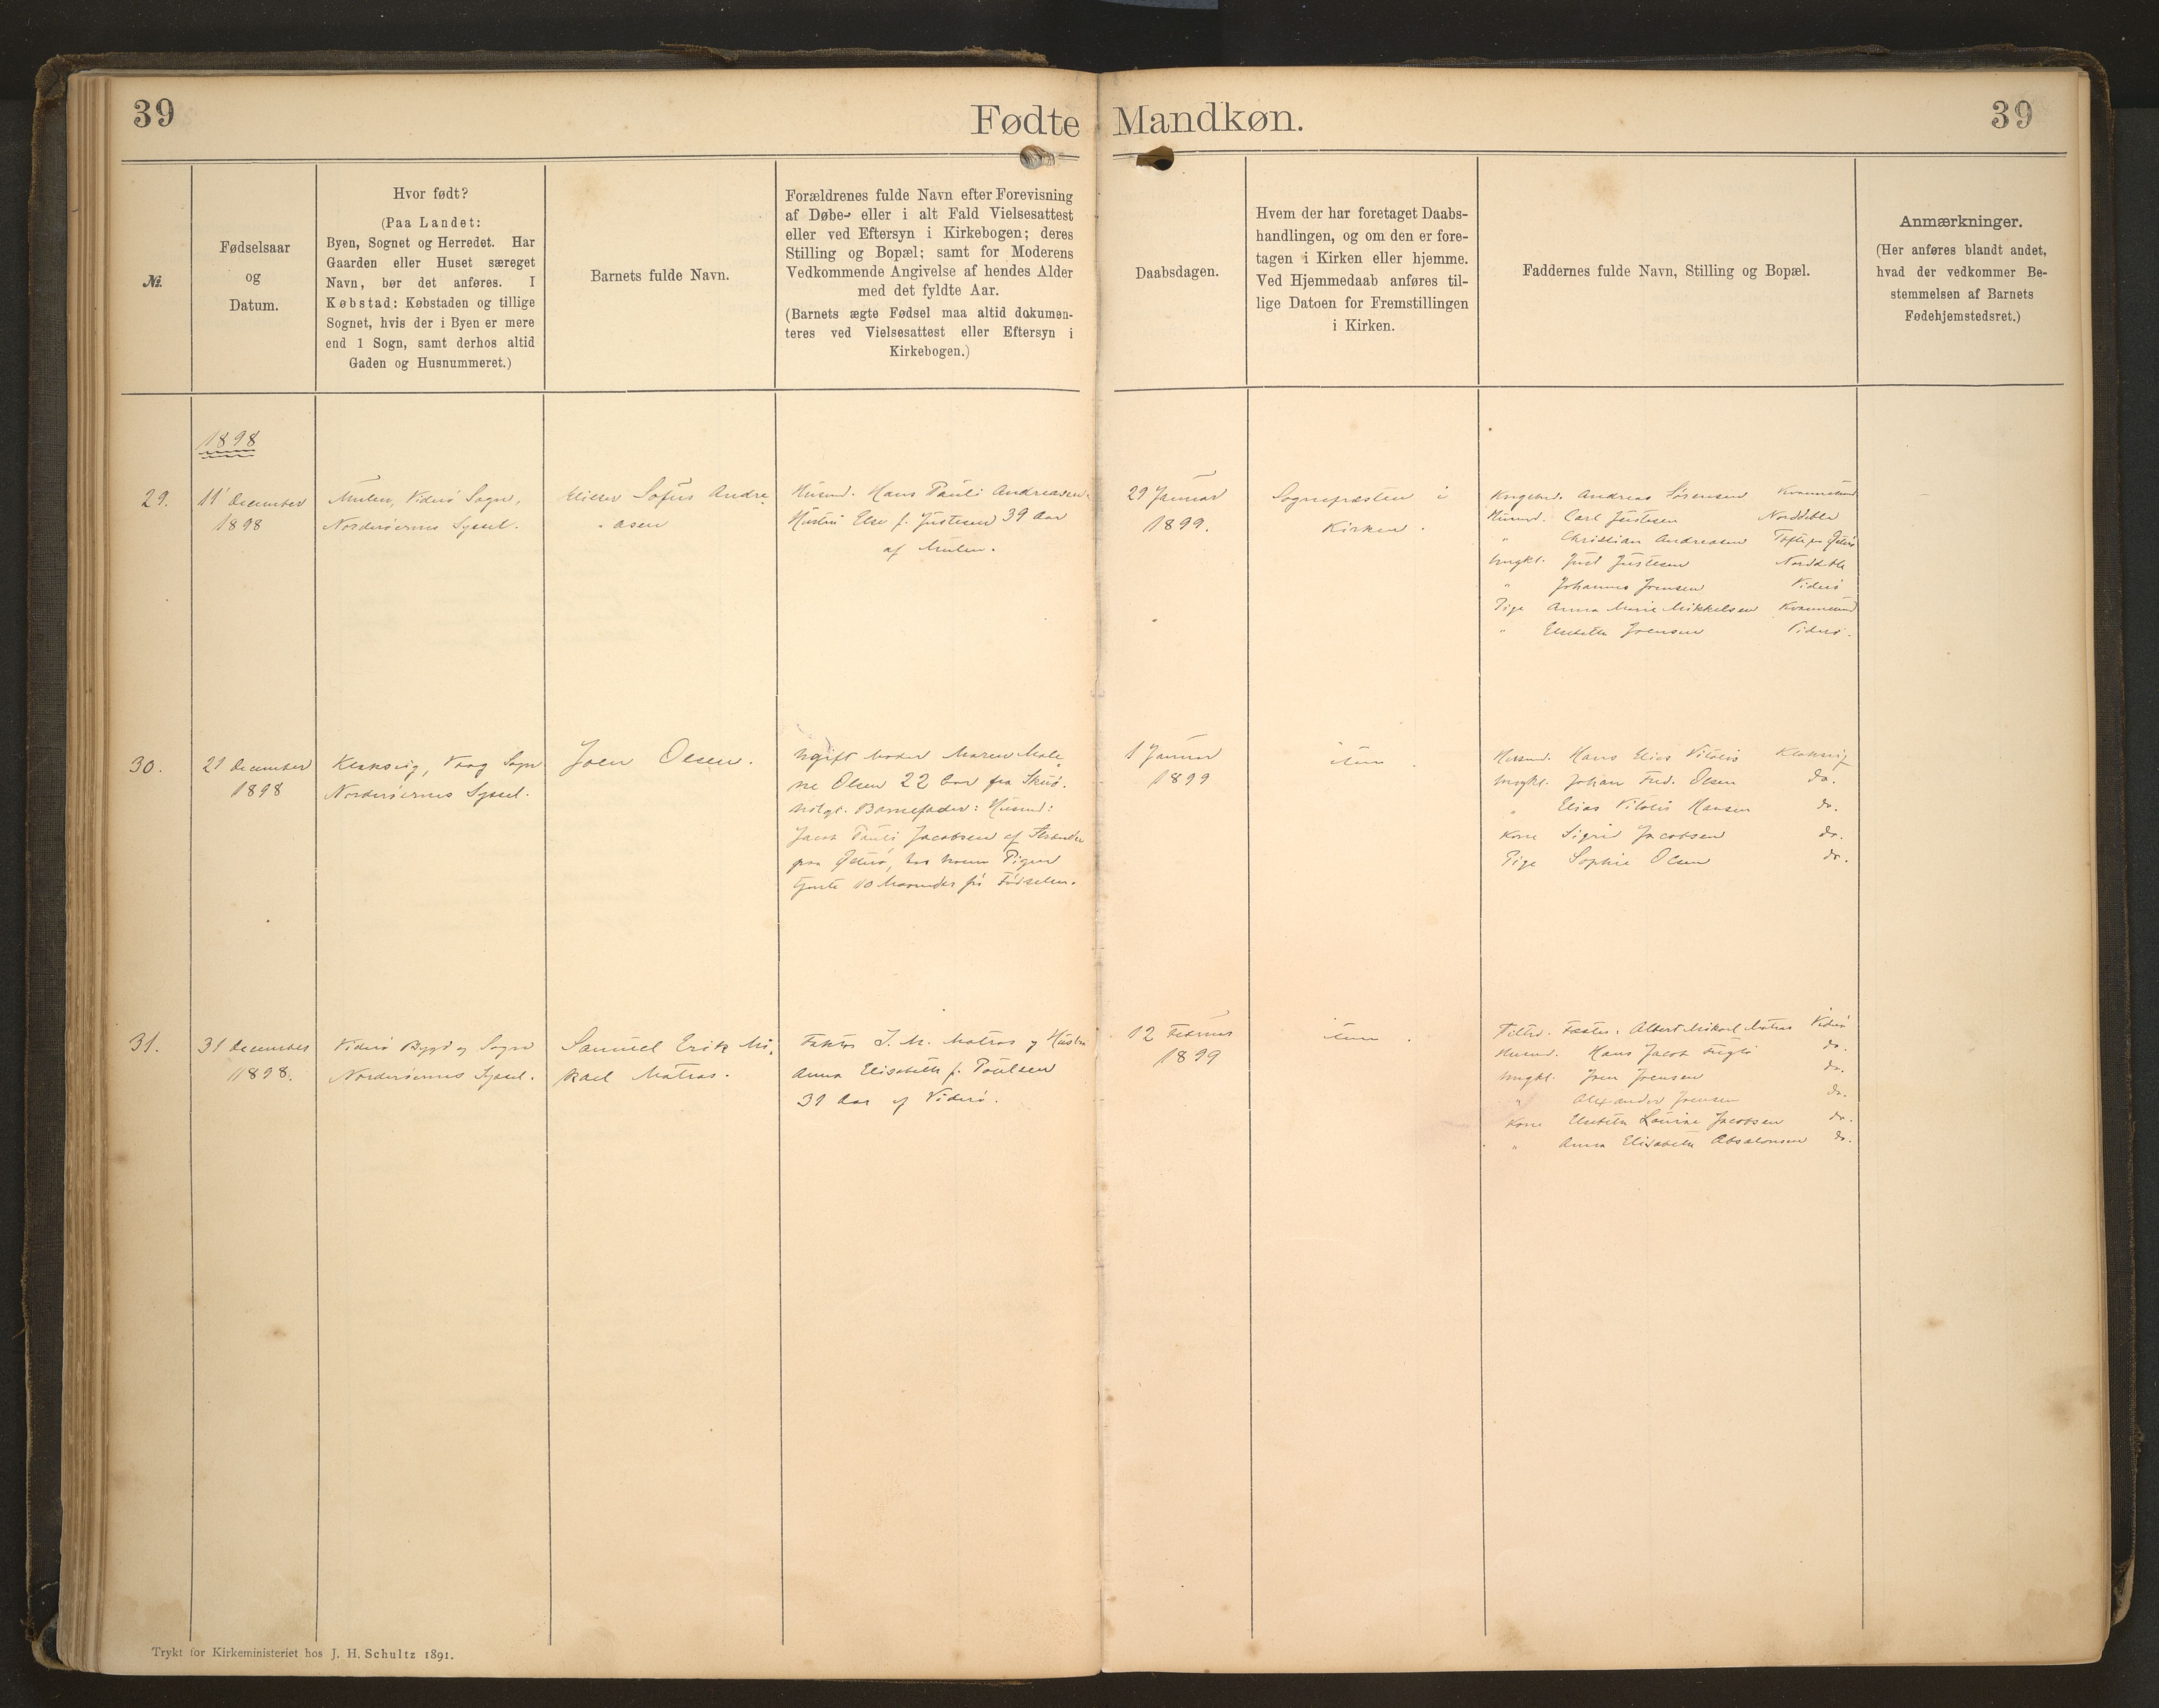 39
Fødte Mandkøn.
39
№.
Fødselsaar
og
Datum.
Hvor født?
(Paa Landet:
Byen, Sognet og Herredet. Har
Gaarden eller Huset særeget
Navn, bør det anføres. I
Købstad: Købstaden og tillige
Sognet, hvis der i Byen er mere
end 1 Sogn, samt derhos altid
Gaden og Husnummeret.)
Barnets fulde Navn.
Forældrenes fulde Navn efter Forevisning
af Døbe- eller i alt Fald Vielsesattest
eller ved Eftersyn i Kirkebogen; deres
Stilling og Bopæl; samt for Moderens
Vedkommende Angivelse af hendes Alder
med det fyldte Aar.
(Barnets ægte Fødsel maa altid dokumen-
teres ved Vielsesattest eller Eftersyn i
Kirkebogen.)
Daabsdagen.
Hvem der har foretaget Daabs-
handlingen, og om den er fore-
tagen i Kirken eller hjemme.
Ved Hjemmedaab anføres til-
lige Datoen for Fremstillingen
i Kirken.
Faddernes fulde Navn, Stilling og Bopæl.
Anmærkninger.
(Her anføres blandt andet,
hvad der vedkommer Be-
stemmelsen af Barnets
Fødehjemstedsret.)
1898
29.
11 December
1898
Mulen, Viderø Sogn,
Norderøernes Syssel.
Sofus Andre-
asen
Husmd. Hans Pauli Andreasen
Hustru Else f. Justesen 39 Aar
af Mulen.
29 Januar
1899.
Sognepræsten i
Kirken.
Andreas Sørensen Kvannesund
Husmd. Carl Justesen Norddeble
" Christian Andreasen
Ungkl. Just Justesen Norddeble
" Johannes Joensen Viderø
Pige Anna Marie Mikkelsen Kvannesund
" Elsebeth Joensen Viderø.
30.
21 December
1898
Klaksvig, Vaag Sogn
Norderøernes Syssel.
Joen Olsen.
Ugift Moder Maren Male-
ne Olsen 22 Aar fra Skuø.
Udlgt. Barnefader: Husmd:
Jacob Pauli Jacobsen af Strande
paa Østerø, hos hvem Pigen
tjente 10 Maaneder før Fødselen.
1 Januar
1899
item.
Husmd. Hans Elias Vitalis Klaksvig
Ungkl. Johan Fred. Olsen do.
" Elias Vitalis Hansen do.
Kone Sigrid Jacobsen do.
Pige Sophie Olsen do.
31.
31 December
1898.
Viderø Bygd og Sogn
Norderøernes Syssel.
Samuel Erik Mi-
kael Matras.
J. M. Matras og Hustru
Anna Elisabeth f. Poulsen
31 Aar af Viderø.
12 Februar
1899
item.
Albert Mikael Matras Viderø
Husmd. Hans Jacob Fuglø do.
Ungkl. Joen Joensen do.
" Alexander Joensen do.
Kone Elsebeth Louise Jacobsen do.
" Anna Elisabeth Absalonsen do.
Trykt for Kirkeministeriet hos J. H. Schultz 1891.